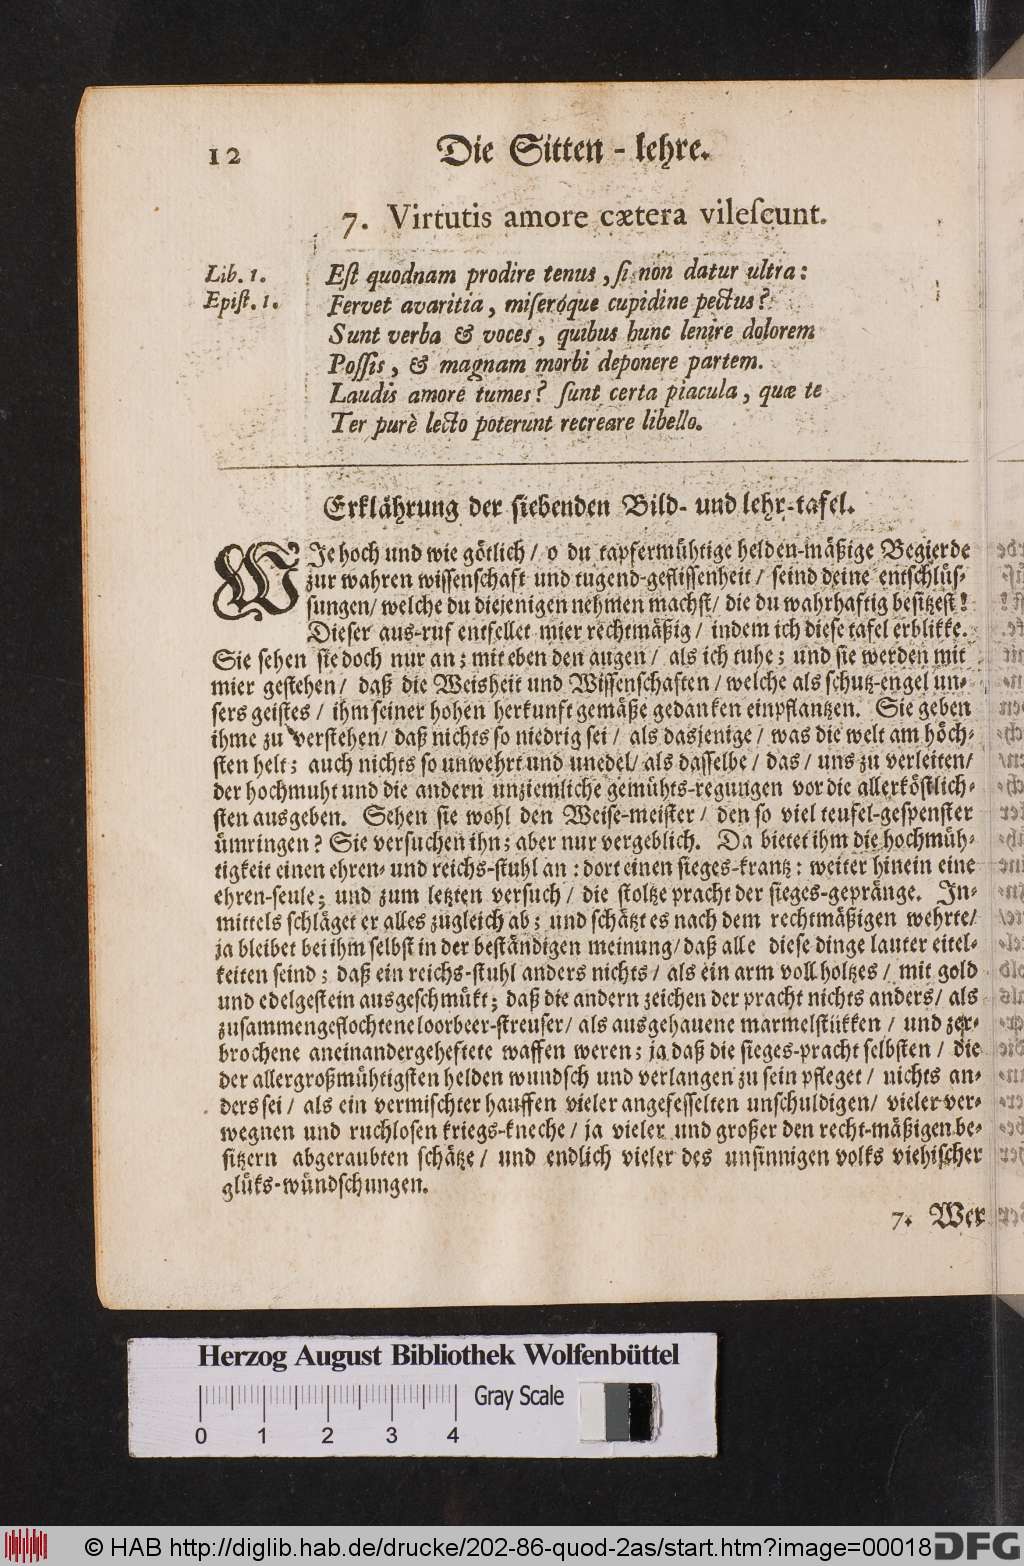 12
Die Sitten-lehre.
7. Virtutis amore cætera vileſcunt.
Lib. 1.
Epiſt. 1.
Eſt quodnam prodire tenus, ſi non datur ultra:
Fervet avaritia, miſeróque cupidine pectus?
Sunt verba & voces, quibus hunc lenire dolorem
Poſſis, & magnam morbi deponere partem.
Laudis amore tumes? ſunt certa piacula, quæ te
Ter purè lecto poterunt recreare libello.
Erklährung der ſiebenden Bild- und lehr-tafel.
WIe hoch und wie götlich/ o du tapfermühtige helden-mäßige Begierde
zur wahren wiſſenſchaft und tugend-gefliſſenheit/ ſeind deine entſchlüſ-
ſungen/ welche du diejenigen nehmen machſt/ die du wahrhaftig beſitzeſt!
Dieſer aus-ruf entfellet mier rechtmäßig/ indem ich dieſe tafel erblikke.
Sie ſehen ſie doch nur an; mit eben den augen/ als ich tuhe; und ſie werden mit
mier geſtehen/ daß die Weisheit und Wiſſenſchaften/ welche als ſchutz-engel un-
ſers geiſtes/ ihm ſeiner hohen herkunft gemäße gedanken einpflantzen. Sie geben
ihme zu verſtehen/ daß nichts ſo niedrig ſei/ als dasjenige/ was die welt am höch-
ſten helt; auch nichts ſo unwehrt und unedel/ als daſſelbe/ das/ uns zu verleiten/
der hochmuht und die andern unziemliche gemühts-regungen vor die allerköſtlich-
ſten ausgeben. Sehen ſie wohl den Weiſe-meiſter/ den ſo viel teufel-geſpenſter
ümringen? Sie verſuchen ihn; aber nur vergeblich. Da bietet ihm die hochmüh-
tigkeit einen ehren- und reichs-ſtuhl an: dort einen ſieges-krantz: weiter hinein eine
ehren-ſeule; und zum letzten verſuch/ die ſtoltze pracht der ſieges-gepränge. In-
mittels ſchläget er alles zugleich ab; und ſchätzt es nach dem rechtmäßigen wehrte/
ja bleibet bei ihm ſelbſt in der beſtändigen meinung/ daß alle dieſe dinge lauter eitel-
keiten ſeind; daß ein reichs-ſtuhl anders nichts/ als ein arm voll holtzes/ mit gold
und edelgeſtein ausgeſchmükt; daß die andern zeichen der pracht nichts anders/ als
zuſammengeflochtene loorbeer-ſtreuſer/ als ausgehauene marmelſtükken/ und zer-
brochene aneinandergeheftete waffen weren; ja daß die ſieges-pracht ſelbſten/ die
der allergroßmühtigſten helden wundſch und verlangen zu ſein pfleget/ nichts an-
ders ſei/ als ein vermiſchter hauffen vieler angefeſſelten unſchuldigen/ vieler ver-
wegnen und ruchloſen kriegs-kneche/ ja vieler und großer den recht-mäßigen be-
ſitzern abgeraubten ſchätze/ und endlich vieler des unſinnigen volks viehiſcher
glüks-wündſchungen.
7. Wer
Herzog August Bibliothek Wolfenbüttel
Gray Scale
0 1 2 3 4
© HAB http://diglib.hab.de/drucke/202-86-quod-2as/start.htm?image=00018
DFG